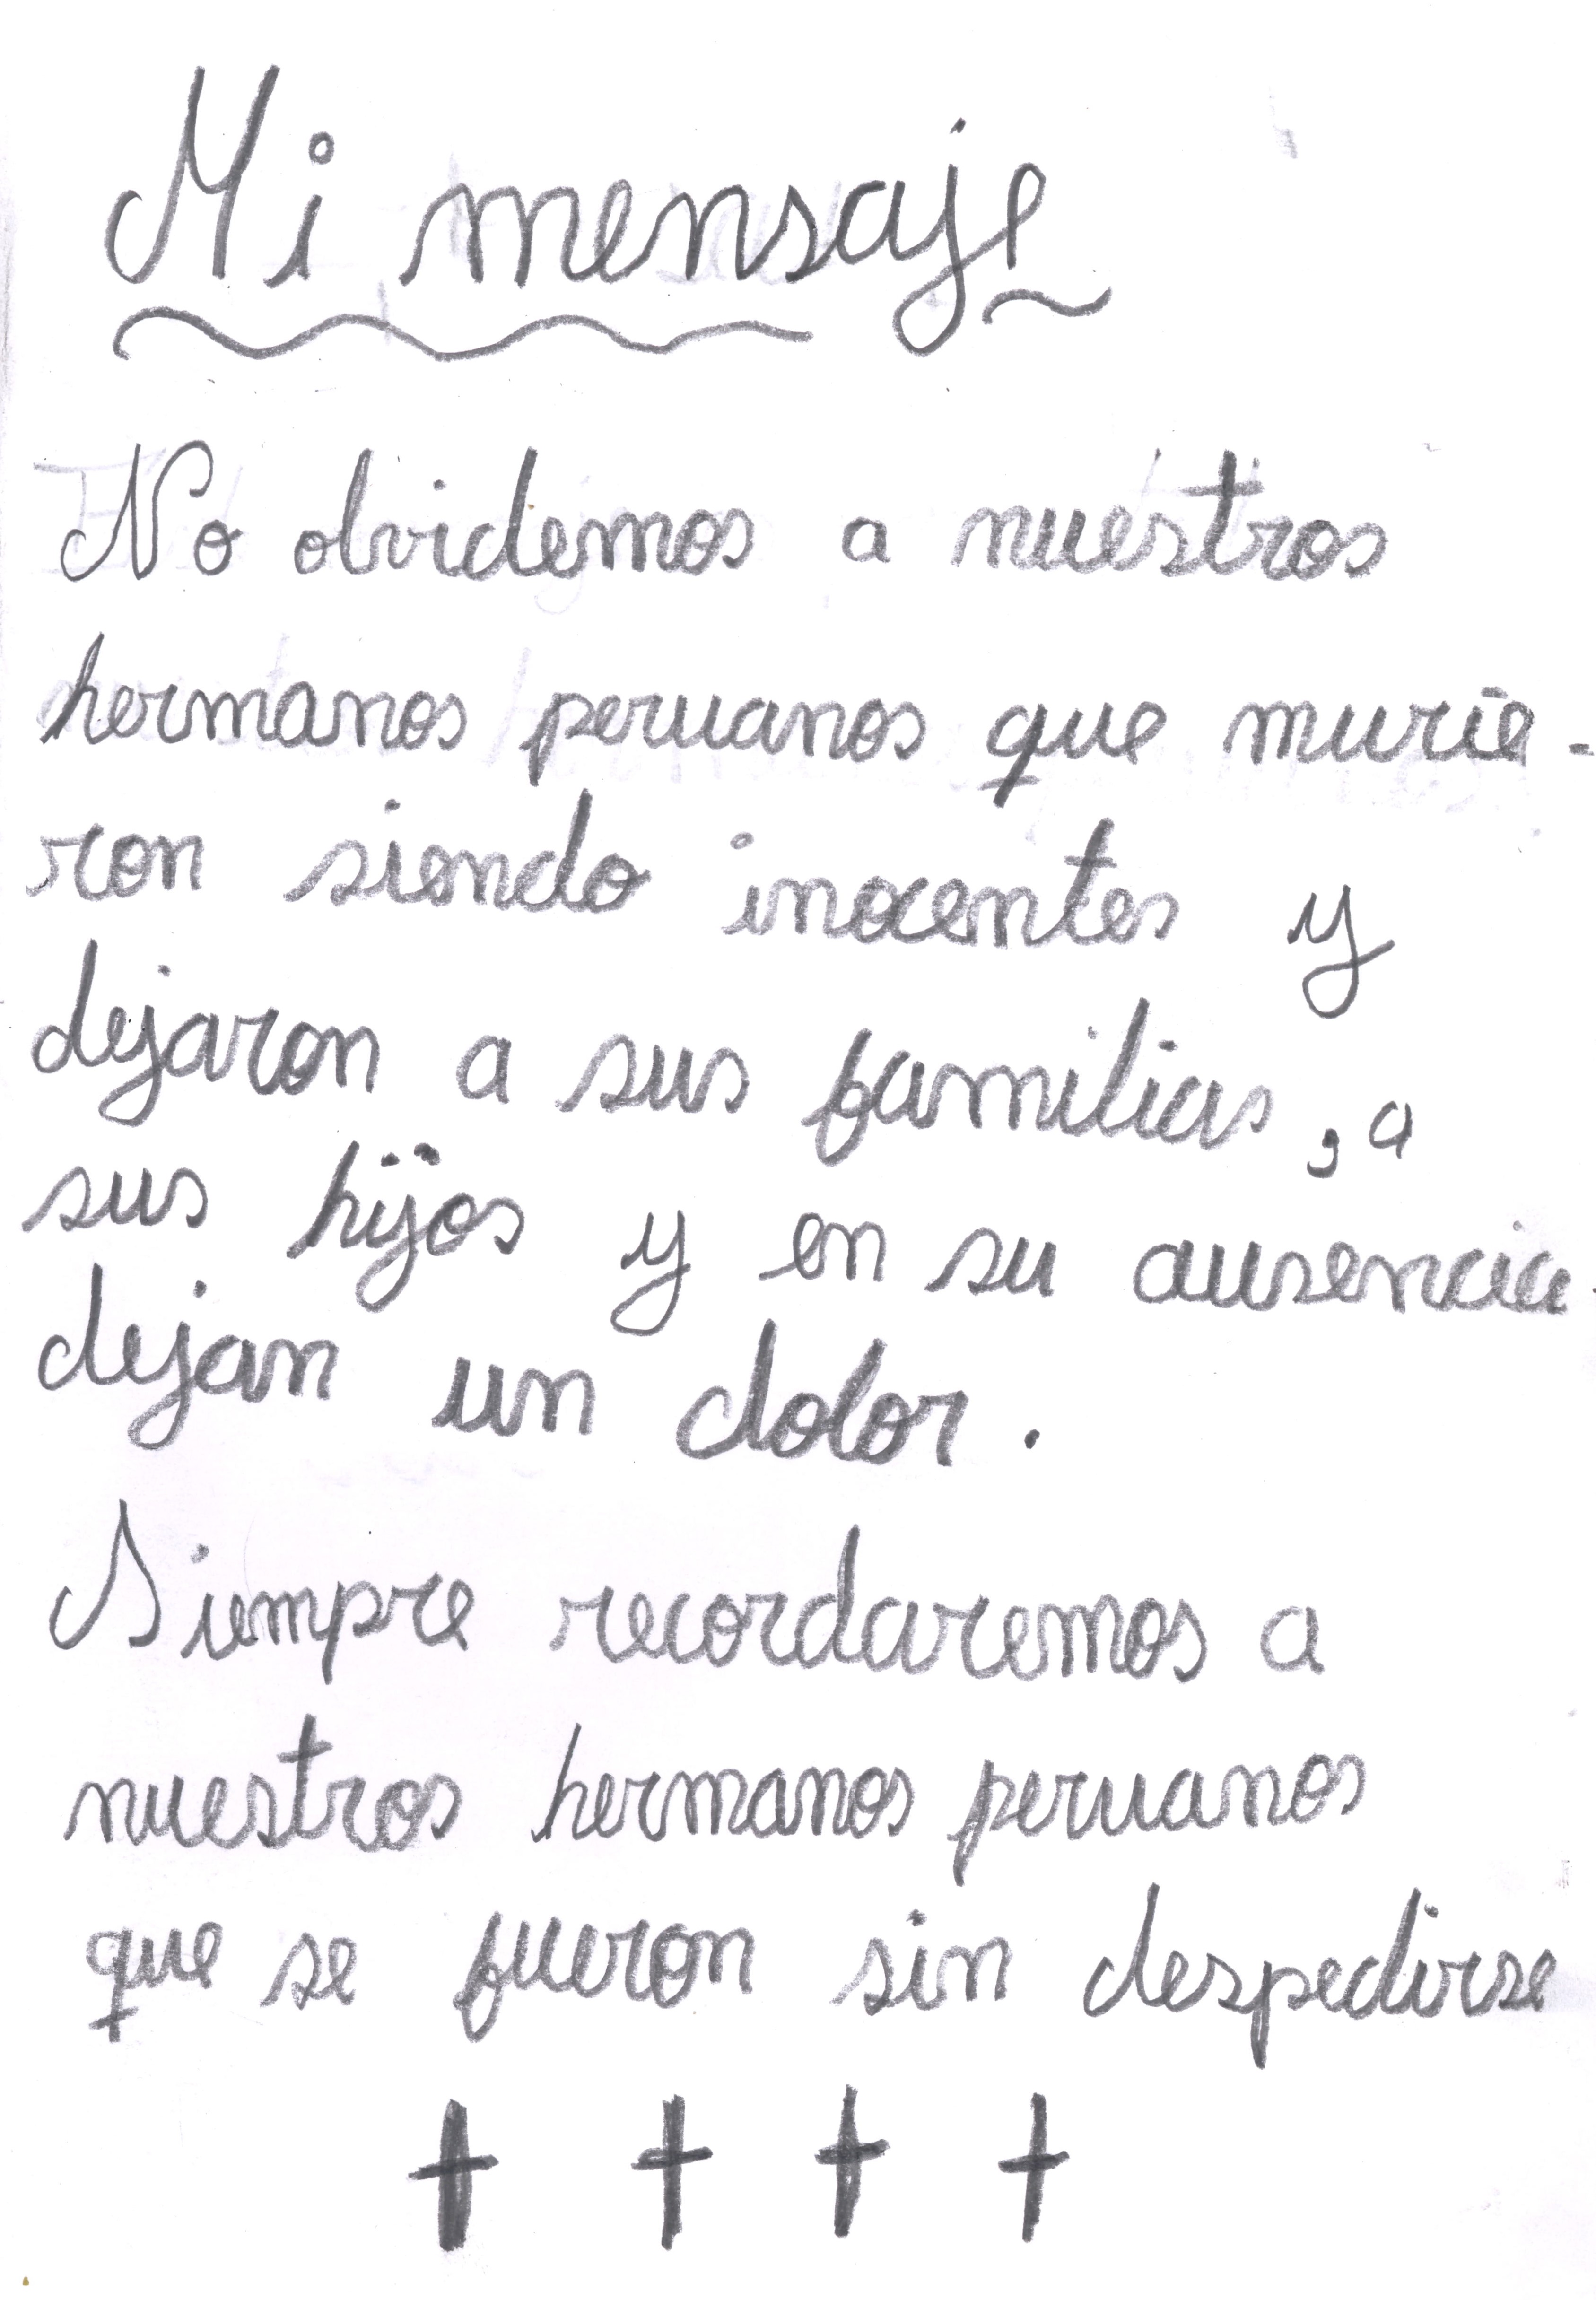 Mi mensaje
No olvidemos a nuestros
hermanos peruanos que murie-
ron siendo inocentes y
dejaron a sus familias, a
sus hijos y en su ausencia
dejan un dolor.
Siempre recordaremos a
nuestros hermanos peruanos
que se fueron sin despedirse